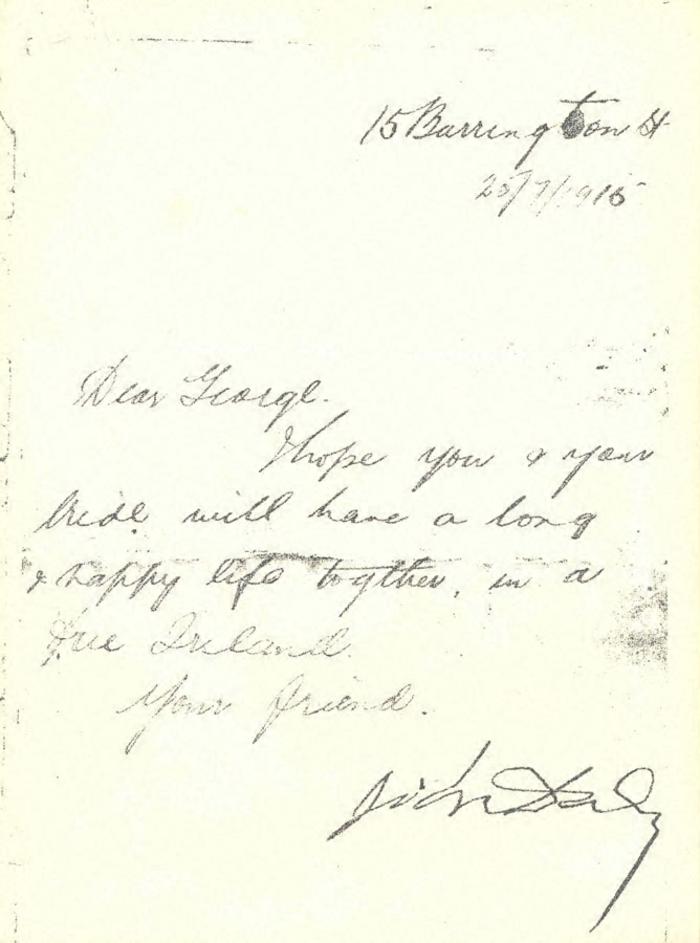 15 Barrington St
25/7/1915
Dear George.
I hope you & your
bride will have a long
& happy life together, in a
free Ireland.
Your friend.
John Daly